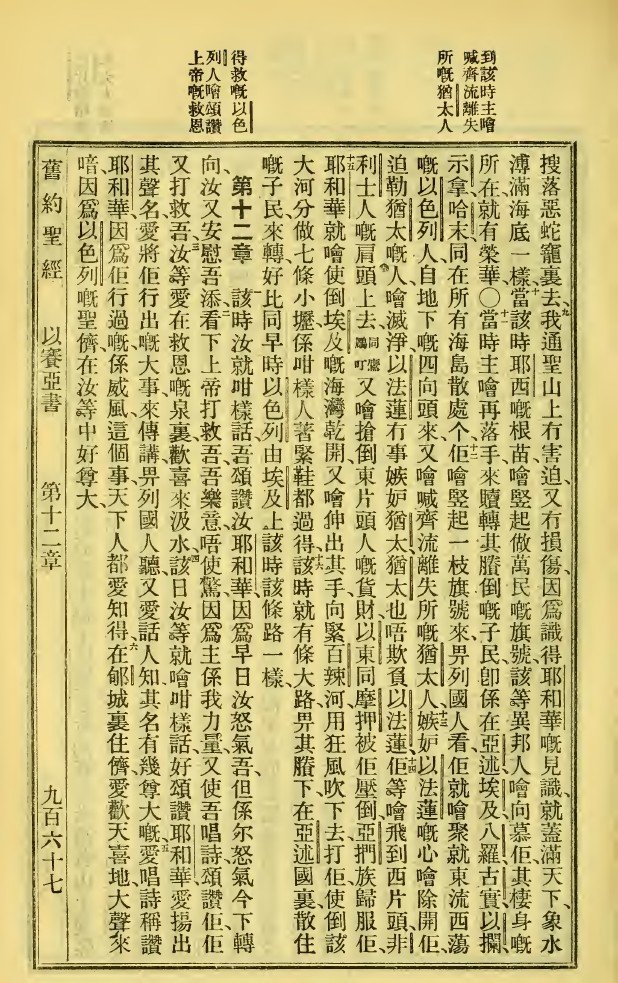 到該時主噲
喊齊流離失
所嘅猶太人
得救嘅以色
列人噲頌讚
上帝嘅救恩
搜落惡蛇竉裏去、九我通聖山上冇害迫、又冇損傷、因爲識得耶和華嘅見識、就蓋滿天下、象水
溥滿海底一樣、十當該時耶西嘅根苗、噲竪起做萬民嘅旗號、該等異邦人噲向慕佢、其棲身嘅
所在、就有榮華〇十一當時主噲再落手、來贖轉其賸倒嘅子民、卽係在亞述、埃及、八羅、古實、以攔、
示拿、哈末、同在所有海島散處个、十二佢噲竪起一枝旗號來、畀列國人看、佢就噲聚就東流西蕩
嘅以色列人、自地下嘅四向頭來、又噲喊齊流離失所嘅猶太人、十三嫉妒以法蓮嘅心噲除開佢、
迫勒猶太嘅人、噲滅淨、以法蓮冇事嫉妒猶太、猶太也唔欺負以法蓮、十四佢等噲飛到西片頭、非
利士人嘅肩頭上去、又噲搶倒東片頭人嘅貨財、以東同摩押被佢壓倒、亞捫族歸服佢、
十五耶和華就噲使倒埃及嘅海灣乾開、又噲伸出其手、向緊百辣河、用狂風吹下去、打佢使倒該
大河分做七條小壢、係咁樣人著緊鞋都過得、十六該時就有條大路、畀其賸下、在亞述國裏散住
嘅子民來轉、好比同早時以色列由埃及上、該時該條路一樣、
第十二章 一該時汝就咁樣話、吾頌讚汝耶和華、因爲早日汝怒氣吾、但係尔怒氣今下轉
向、汝又安慰吾添、二看下上帝打救吾、吾樂意唔使驚、因爲主係我力量、又使吾唱詩頌讚佢、佢
又打救吾、三汝等愛在救恩嘅泉裏、歡喜來汲水、四該日汝等就噲咁樣話、好頌讚耶和華、愛揚出
其聲名、愛將佢行出嘅大事來傳講、畀列國人聽、又愛話人知、其名有幾尊大嘅、五愛唱詩稱讚
耶和華、因爲佢行過嘅係威風、這個事、天下人都愛知得、六在郇城裏住儕、愛歡天喜地、大聲來
喑、因爲以色列嘅聖儕、在汝等中好尊大、
舊約聖經 以賽亞書 第十二章 九百六十七